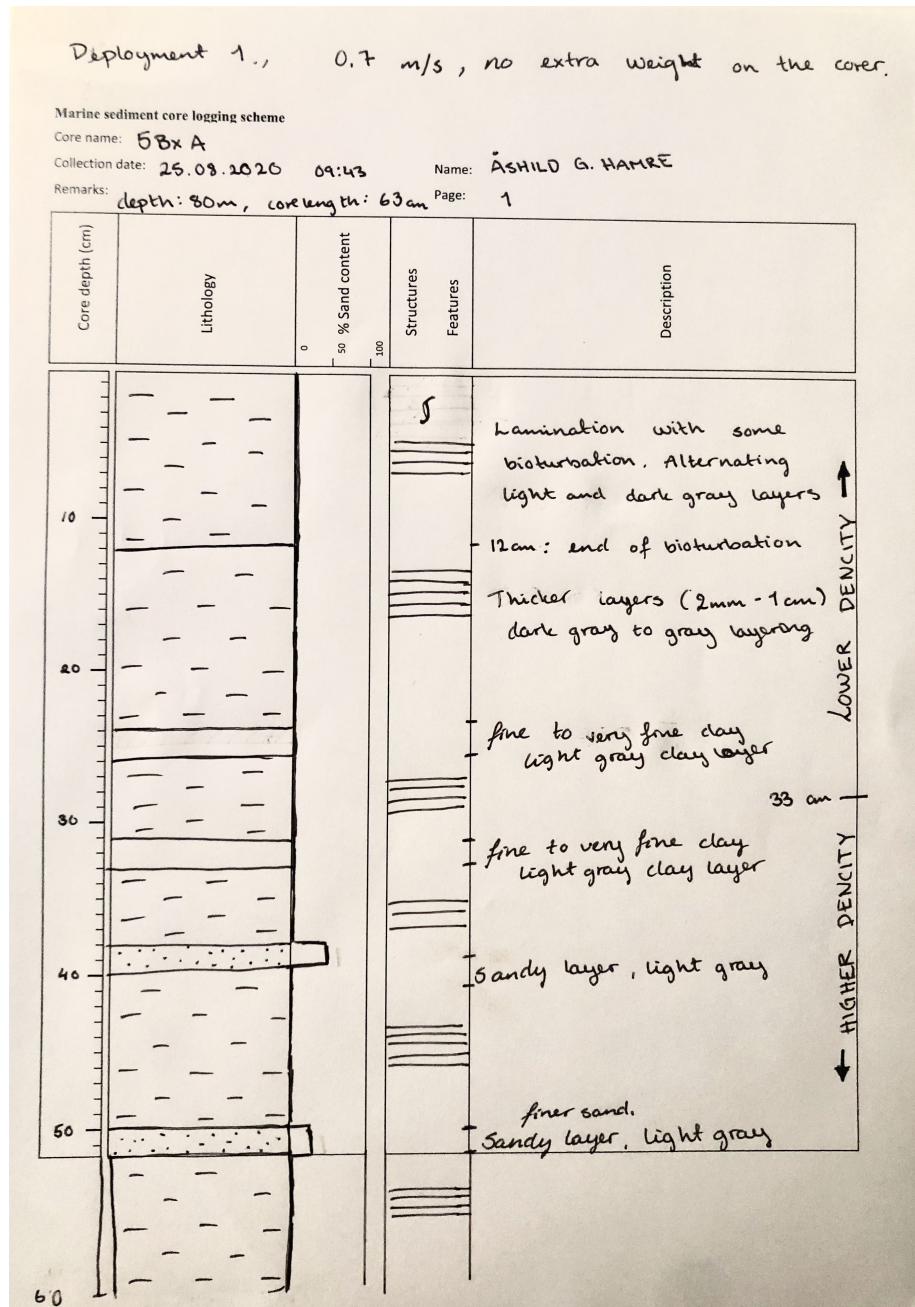 Deployment 1., 0.7 m/s, no extra weight on the corer.
Marine sediment core logging scheme
Core name: 5Bx A
Collection date: 25.08.2020 09:43 Name: ÅSHILD G. HAMRE
Remarks: depth: 80m, core length: 63cm Page: 1
Core depth (cm)
Lithology
% Sand content
0 50 100
Structures
Features
Description
Lamination with some
bioturbation. Alternating
light and dark gray layers
10
12cm: end of bioturbation
Thicker layers (2mm - 1cm)
dark gray to gray layering
LOWER DENCITY
20
fine to very fine clay
light gray clay layer
33 cm
30
fine to very fine clay
light gray clay layer
HIGHER DENCITY
40
Sandy layer, light gray
finer sand.
50
Sandy layer, light gray
60